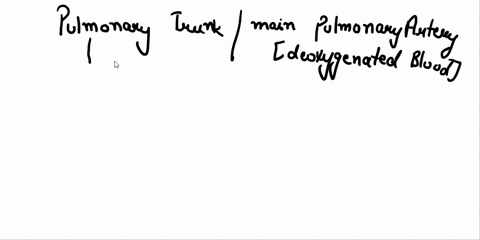 Pulmonary Trunk / main Pulmonary Artery
[deoxygenated Blood]